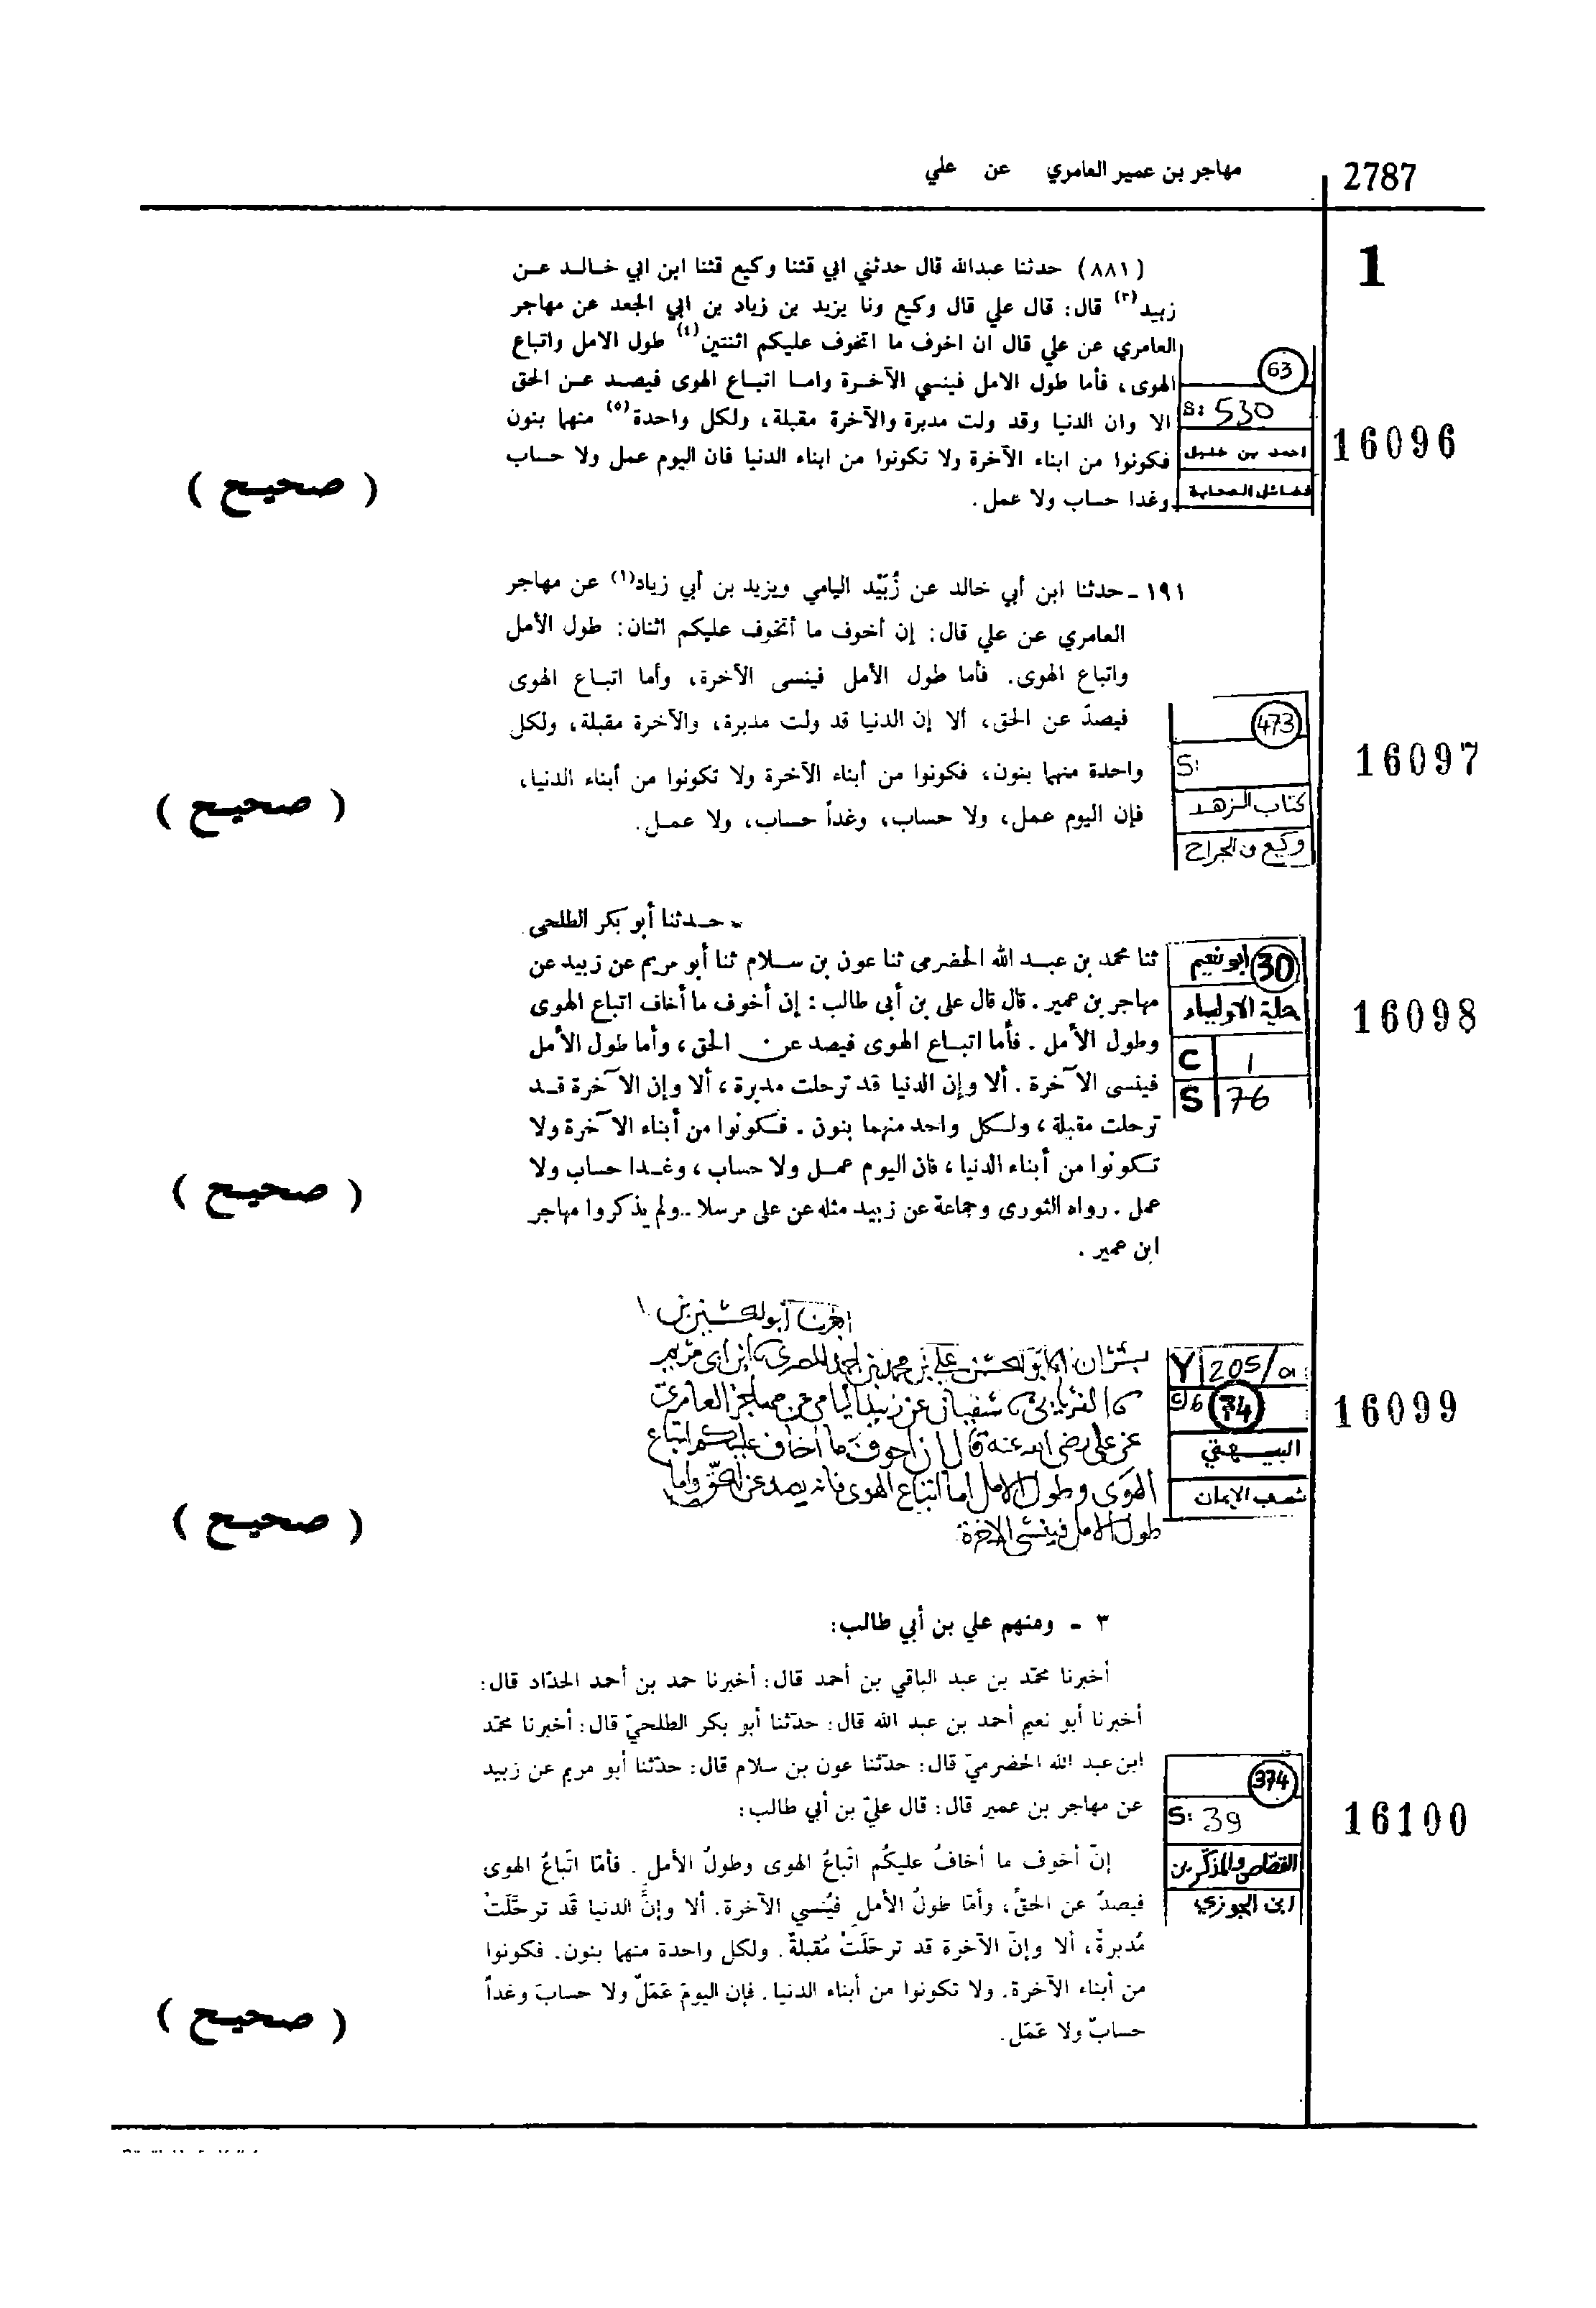 2787
مهاجر بن عمير العامري عن علي
1
(٨٨١) حدثنا عبدالله قال حدثني ابي قثنا وكيع قثنا ابن ابي خالد عن
زبيد(٣) قال: قال علي قال وكيع ونا يزيد بن زياد بن ابي الجعد عن مهاجر
العامري عن علي قال ان اخوف ما اتخوف عليكم اثنتين(٤) طول الامل واتباع
الهوى، فأما طول الامل فينسي الآخرة واما اتباع الهوى فيصد عن الحق
الا وان الدنيا وقد ولت مدبرة والآخرة مقبلة، ولكل واحدة(٥) منهما بنون
فكونوا من ابناء الآخرة ولا تكونوا من ابناء الدنيا فان اليوم عمل ولا حساب
وغدا حساب ولا عمل.
63
S: 530
احمد بن حنبل
فضائل الصحابة
16096
( صحيح )
١٩١ - حدثنا ابن أبي خالد عن زُبَيْد اليامي ويزيد بن أبي زياد(١) عن مهاجر
العامري عن علي قال: إن أخوف ما أتخوف عليكم اثنان: طول الأمل
واتباع الهوى. فأما طول الأمل فينسى الآخرة، وأما اتباع الهوى
فيصدّ عن الحق، ألا إن الدنيا قد ولت مدبرة، والآخرة مقبلة، ولكل
واحدة منهما بنون، فكونوا من أبناء الآخرة ولا تكونوا من أبناء الدنيا،
فإن اليوم عمل، ولا حساب، وغداً حساب، ولا عمل.
473
S:
كتاب الزهد
وكيع بن الجراح
16097
( صحيح )
- حدثنا أبو بكر الطلحى
ثنا محمد بن عبد الله الحضرمى ثنا عون بن سلام ثنا أبو مريم عن زبيد عن
مهاجر بن عمير. قال قال على بن أبى طالب: إن أخوف ما أخاف اتباع الهوى
وطول الأمل. فأما اتباع الهوى فيصد عن الحق، وأما طول الأمل
فينسى الآخرة. ألا وإن الدنيا قد ترحلت مدبرة، ألا وإن الآخرة قد
ترحلت مقبلة، ولكل واحد منهما بنون. فكونوا من أبناء الآخرة ولا
تكونوا من أبناء الدنيا، فان اليوم عمل ولا حساب، وغدا حساب ولا
عمل. رواه الثورى وجماعة عن زبيد مثله عن على مرسلا. ولم يذكروا مهاجر
ابن عمير.
30 ابو نعيم
حلية الاولياء
C 1
S 76
16098
( صحيح )
اخبرنا أبو الحسين بن
بشران ابنا أبو الحسن علي بن محمد بن احمد المصري نا ابن أبي مريم
نا الفريابي نا سفيان عن زبيد اليامي عن مهاجر العامري
عن علي رضي الله عنه قال ان اخوف ما اخاف عليكم اتباع
الهوى وطول الامل اما اتباع الهوى فانه يصد عن الحق واما
طول الامل فينسي الاخرة
Y 205/a
C/6 34
البيهقي
شعب الإيمان
16099
( صحيح )
٣ - ومنهم علي بن أبي طالب:
أخبرنا محمّد بن عبد الباقي بن أحمد قال: أخبرنا حمد بن أحمد الحدّاد قال:
أخبرنا أبو نعيم أحمد بن عبد الله قال: حدّثنا أبو بكر الطلحيّ قال: أخبرنا محمّد
ابن عبد الله الحضرميّ قال: حدّثنا عون بن سلام قال: حدّثنا أبو مريم عن زبيد
عن مهاجر بن عمير قال: قال عليّ بن أبي طالب:
إنّ أخوف ما أخافُ عليكُم اتّباعُ الهوى وطولُ الأمل. فأمّا اتّباعُ الهوى
فيصدُ عن الحقّ، وأمّا طولُ الأمل فيُنسي الآخرة. ألا وإنَّ الدنيا قَد ترحَّلَتْ
مُدبرةً، ألا وإنّ الآخرة قد ترحّلَتْ مُقبلةً. ولكل واحدة منهما بنون. فكونوا
من أبناء الآخرة. ولا تكونوا من أبناء الدنيا. فإن اليومَ عَمَلٌ ولا حسابَ وغداً
حسابٌ ولا عَمَل.
374
S: 39
القصّاص والمذكّرين
ابن الجوزي
16100
( صحيح )